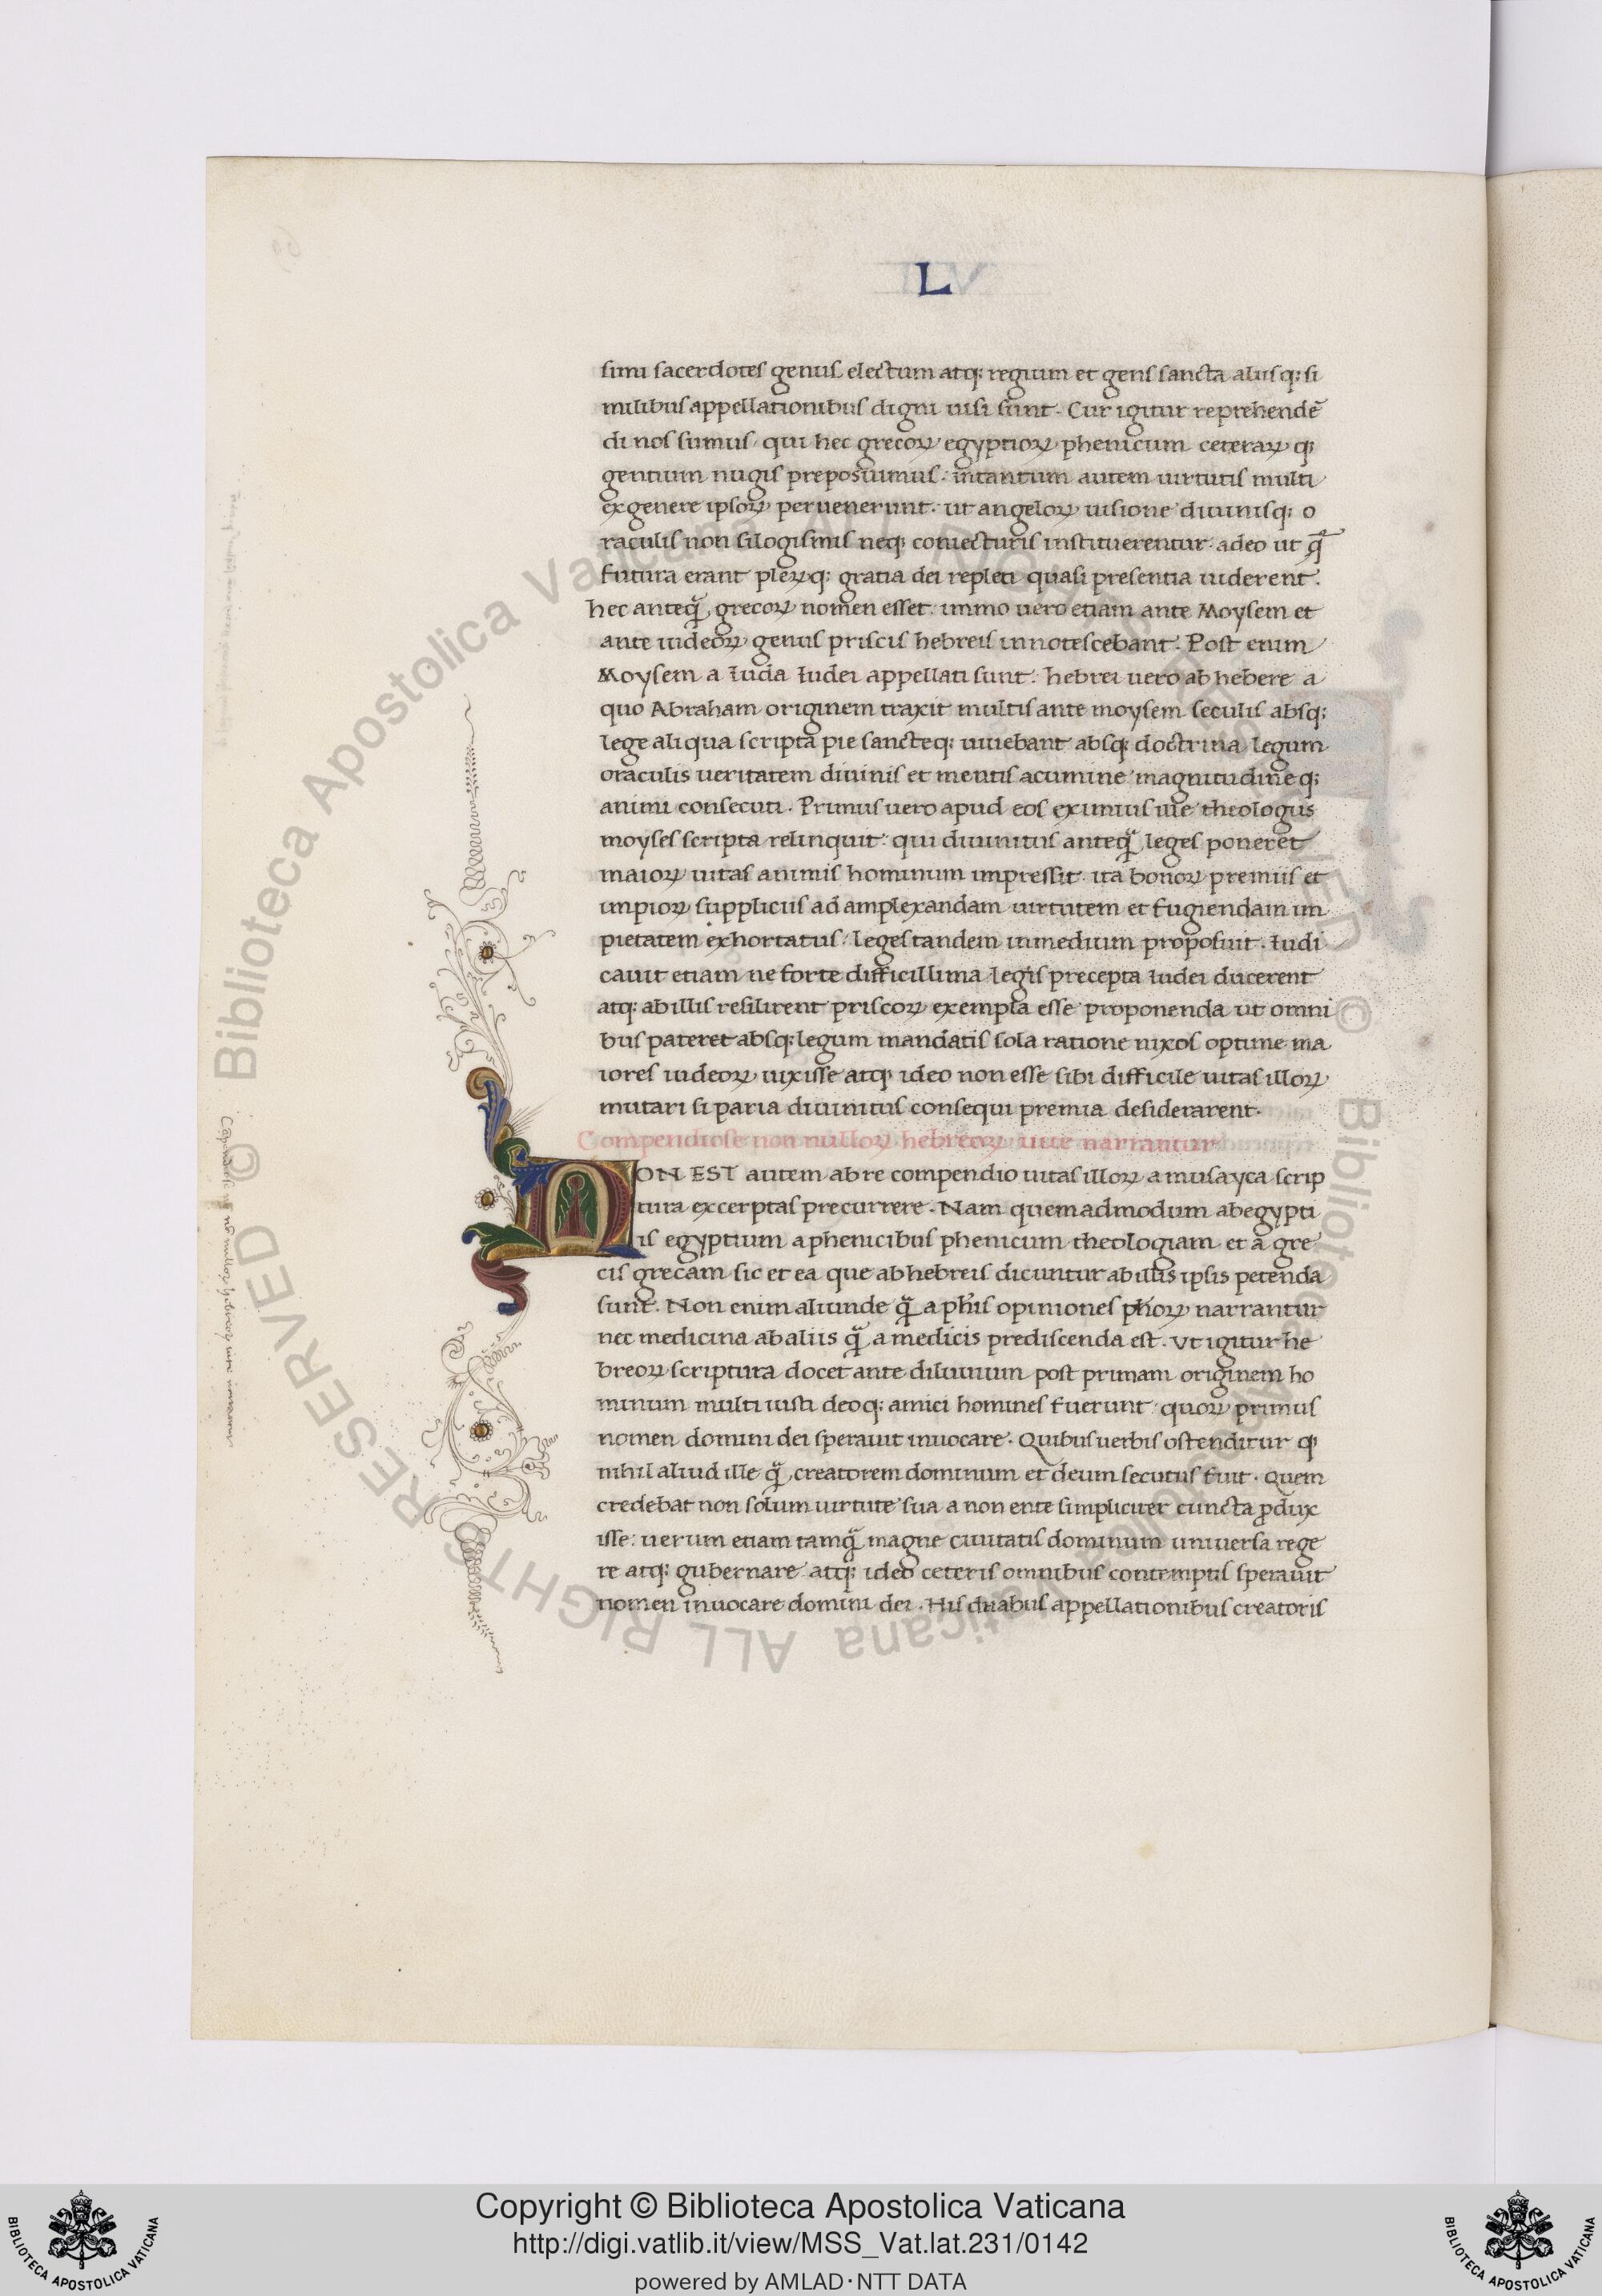 L
simi sacerdotes genus electum atq; regium et gens sancta aliisq; si
milibus appellationibus digni uisi sunt. Cur igitur reprehendē
di nos sumus qui hec grecoꝝ egyptioꝝ phenicum ceteraꝝ q;
gentium nugis preposuimus: intantum autem uirtutis multi
ex genere ipsoꝝ peruenerunt. ut angeloꝝ uisione diuinisq; o
raculis non silogismis neq; coniecturis instituerentur. adeo ut q̃
futura erant pleꝝq; gratia dei repleti quasi presentia uiderent.
hec anteq̃ grecoꝝ nomen esset: immo uero etiam ante Moysem et
ante iudeoꝝ genus priscis hebreis innotescebant. Post enim
Moysem a Iuda Iudei appellati sunt: hebrei uero ab hebere a
quo Abraham originem traxit multis ante moysem seculis absq;
lege aliqua scripta pie sancteq; uiuebant absq; doctrina legum
oraculis ueritatem diuinis et mentis acumine magnitudineq;
animi consecuti. Primus uero apud eos eximius uíe theologus
moyses scripta relinquit: qui diuinitus anteq̃ leges poneret
maioꝝ uitas animis hominum impressit. ita bonoꝝ premiis et
impioꝝ suppliciis ad amplexandam uirtutem et fugiendam im
pietatem exhortatus: leges tandem in medium proposuit. Iudi
cauit etiam ne forte difficillima legis precepta Iudei ducerent
atq; ab illis resilirent priscoꝝ exempla esse proponenda ut omni
bus pateret absq; legum mandatis sola ratione nixos optime ma
iores iudeoꝝ uixisse atq; ideo non esse sibi difficile uitas illoꝝ
mutari si paria diuinitus consequi premia desiderarent.
Compendiose non nulloꝝ hebreoꝝ uite narrantur
NON EST autem ab re compendio uitas illoꝝ a musayca scrip
tura excerptas precurrere. Nam quemadmodum ab egypti
is egyptium a phenicibus phenicum theologiam et a gre
cis grecam sic et ea que ab hebreis dicuntur ab illis ipsis petenda
sunt. Non enim aliunde q̃ a phis opiniones phoꝝ narrantur
nec medicina ab aliis q̃ a medicis prediscenda est. Vt igitur he
breoꝝ scriptura docet ante diluuium post primam originem ho
minum multi iusti deoq; amici homines fuerunt quoꝝ primus
nomen domini dei sperauit inuocare. Quibus uerbis ostenditur q̇
nihil aliud ille q̃ creatorem dominum et deum secutus fuit. Quem
credebat non solum uirtute sua a non ente simpliciter cuncta ꝓdux
isse: uerum etiam tamq̃ magne ciuitatis dominum uniuersa rege
re atq; gubernare atq; ideo ceteris omnibus contemptis sperauit
nomen inuocare domini dei. His duabus appellationibus creatoris
© Biblioteca Apostolica Vaticana ALL RIGHTS RESERVED © Biblioteca Apostolica Vaticana ALL RIGHTS RESERVED
Copyright © Biblioteca Apostolica Vaticana
http://digi.vatlib.it/view/MSS_Vat.lat.231/0142
powered by AMLAD·NTT DATA
BIBLIOTECA APOSTOLICA VATICANA
BIBLIOTECA APOSTOLICA VATICANA